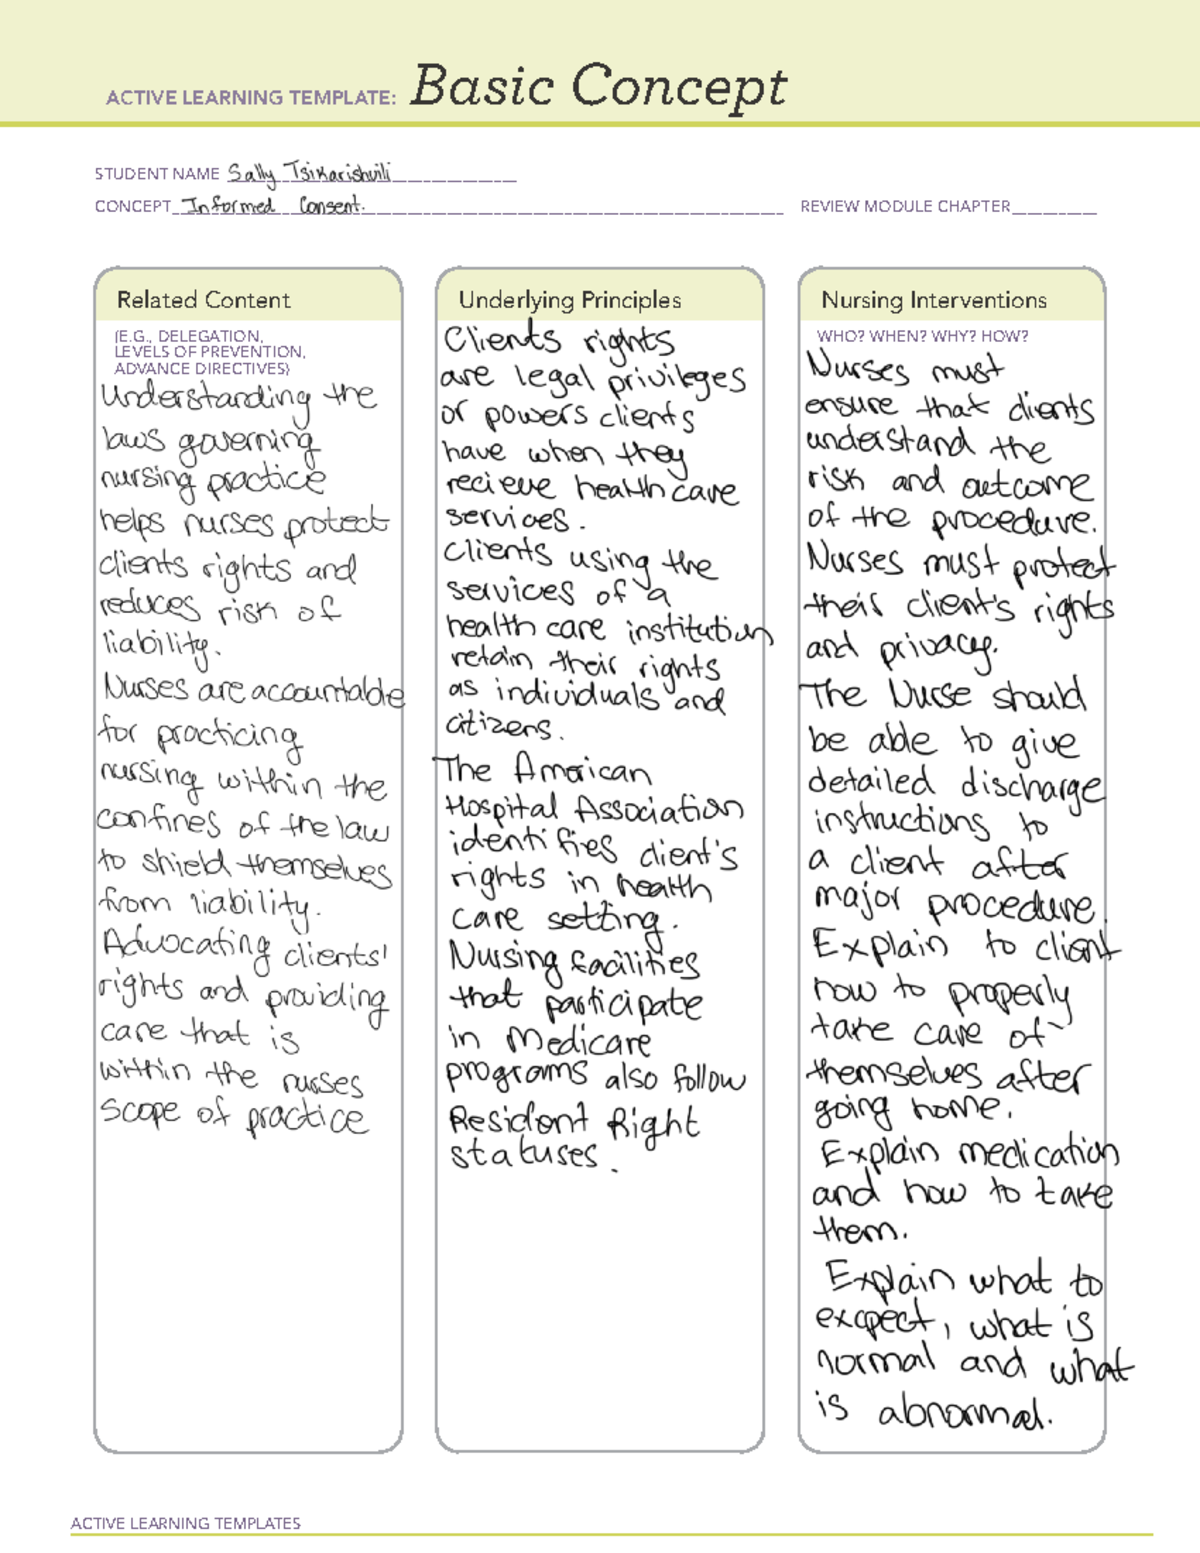 ACTIVE LEARNING TEMPLATE: Basic Concept
STUDENT NAME Sally Tsikarishvili
CONCEPT Informed Consent. REVIEW MODULE CHAPTER
Related Content
(E.G., DELEGATION,
LEVELS OF PREVENTION,
ADVANCE DIRECTIVES)
Understanding the
laws governing
nursing practice
helps nurses protect
clients rights and
reduces risk of
liability.
Nurses are accountable
for practicing
nursing within the
confines of the law
to shield themselves
from liability.
Advocating clients'
rights and providing
care that is
within the nurses
scope of practice
Underlying Principles
Clients rights
are legal privileges
or powers clients
have when they
recieve healthcare
services.
Clients using the
services of a
health care institution
retain their rights
as individuals and
citizens.
The American
Hospital Association
identifies client's
rights in health
care setting.
Nursing facilities
that participate
in Medicare
programs also follow
Resident Right
statuses.
Nursing Interventions
WHO? WHEN? WHY? HOW?
Nurses must
ensure that clients
understand the
risk and outcome
of the procedure.
Nurses must protect
their client's rights
and privacy.
The Nurse should
be able to give
detailed discharge
instructions to
a client after
major procedure.
Explain to client
how to properly
take care of
themselves after
going home.
Explain medication
and how to take
them.
Explain what to
excpect, what is
normal and what
is abnormal.
ACTIVE LEARNING TEMPLATES